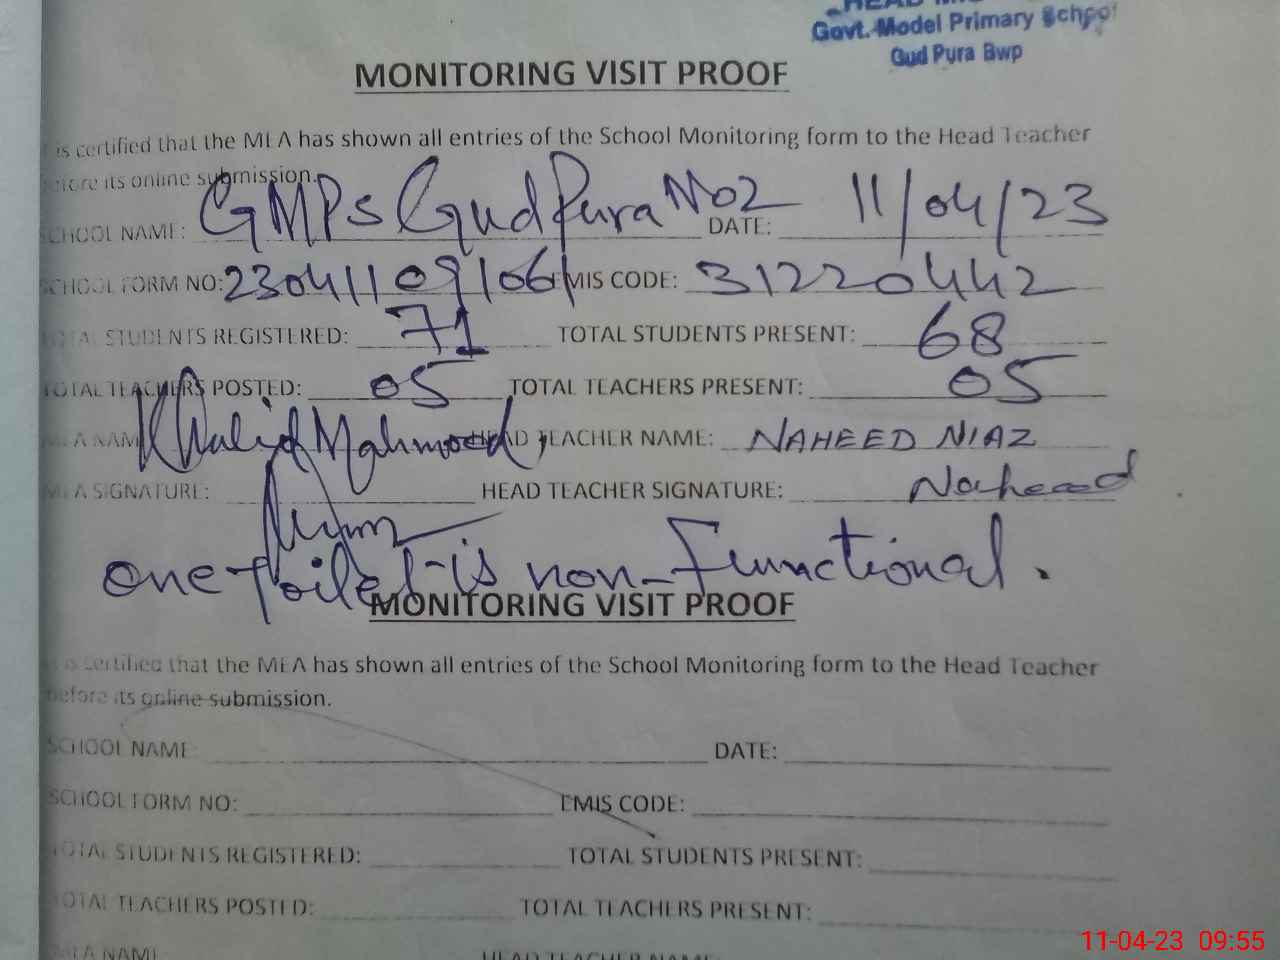 HEAD
Govt. Model Primary School
Gud Pura Bwp
MONITORING VISIT PROOF
is certified that the MEA has shown all entries of the School Monitoring form to the Head Teacher
before its online submission.
SCHOOL NAME: GMPS Gud Pura No 2 DATE: 11/04/23
SCHOOL FORM NO: 23041109106 EMIS CODE: 31220442
TOTAL STUDENTS REGISTERED: 71 TOTAL STUDENTS PRESENT: 68
TOTAL TEACHERS POSTED: 05 TOTAL TEACHERS PRESENT: 05
MEA NAME Khalid Mahmood, HEAD TEACHER NAME: NAHEED NIAZ
MEA SIGNATURE: HEAD TEACHER SIGNATURE: Naheed
one toilet is non-Functional.
MONITORING VISIT PROOF
is certified that the MEA has shown all entries of the School Monitoring form to the Head Teacher
before its online submission.
SCHOOL NAME: DATE:
SCHOOL FORM NO: EMIS CODE:
TOTAL STUDENTS REGISTERED: TOTAL STUDENTS PRESENT:
TOTAL TEACHERS POSTED: TOTAL TEACHERS PRESENT:
MEA NAME HEAD TEACHER NAME:
11-04-23 09:55